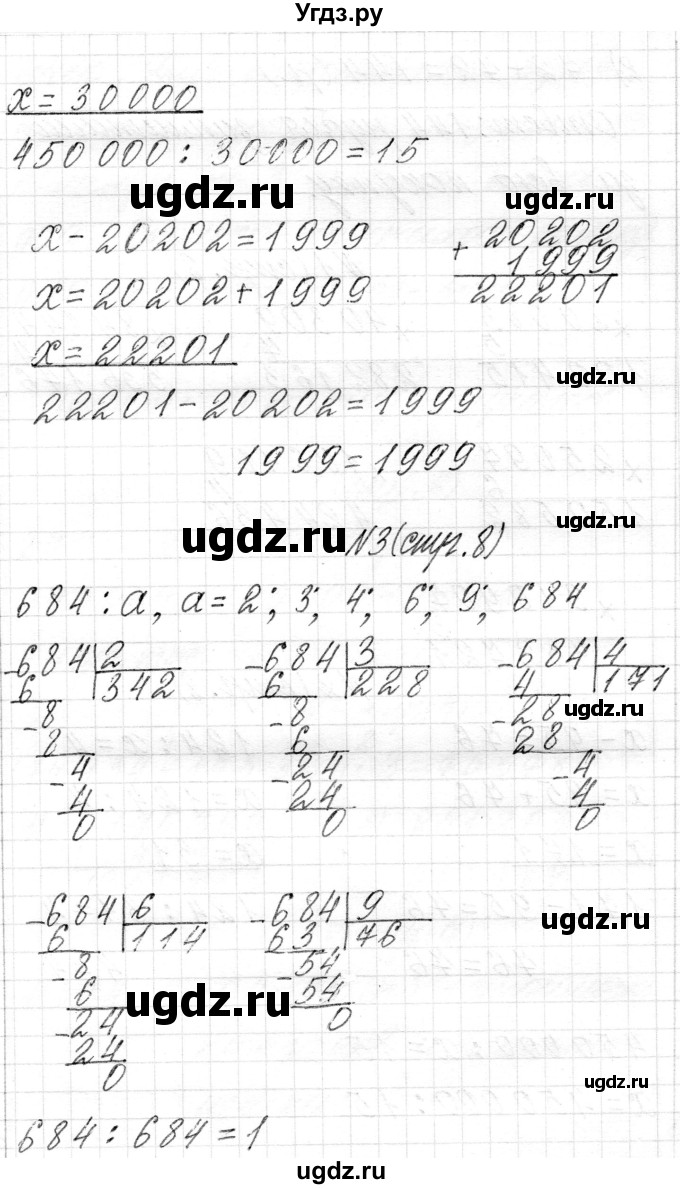 Угдз.ру
x = 30000
450 000 : 30000 = 15
ugdz.ru
ugdz.ru
x - 20202 = 1999
x = 20202 + 1999
x = 22201
+ 20202
1999
22201
ugdz.ru
22201 - 20202 = 1999
1999 = 1999
ugdz.ru
ugdz.ru
N3 (стр. 8)
684 : a, a = 2; 3; 4; 6; 9; 684
- 684 | 2
6 342
- 8
8
- 4
4
0
- 684 | 3
6 228
- 8
6
- 24
24
0
- 684 | 4
4 171
- 28
28
- 4
4
0
ugdz.ru
- 684 | 6
6 114
- 8
6
- 24
24
0
- 684 | 9
63 76
- 54
54
0
ugdz.ru
ugdz.ru
ugdz.ru
684 : 684 = 1
ugdz.ru